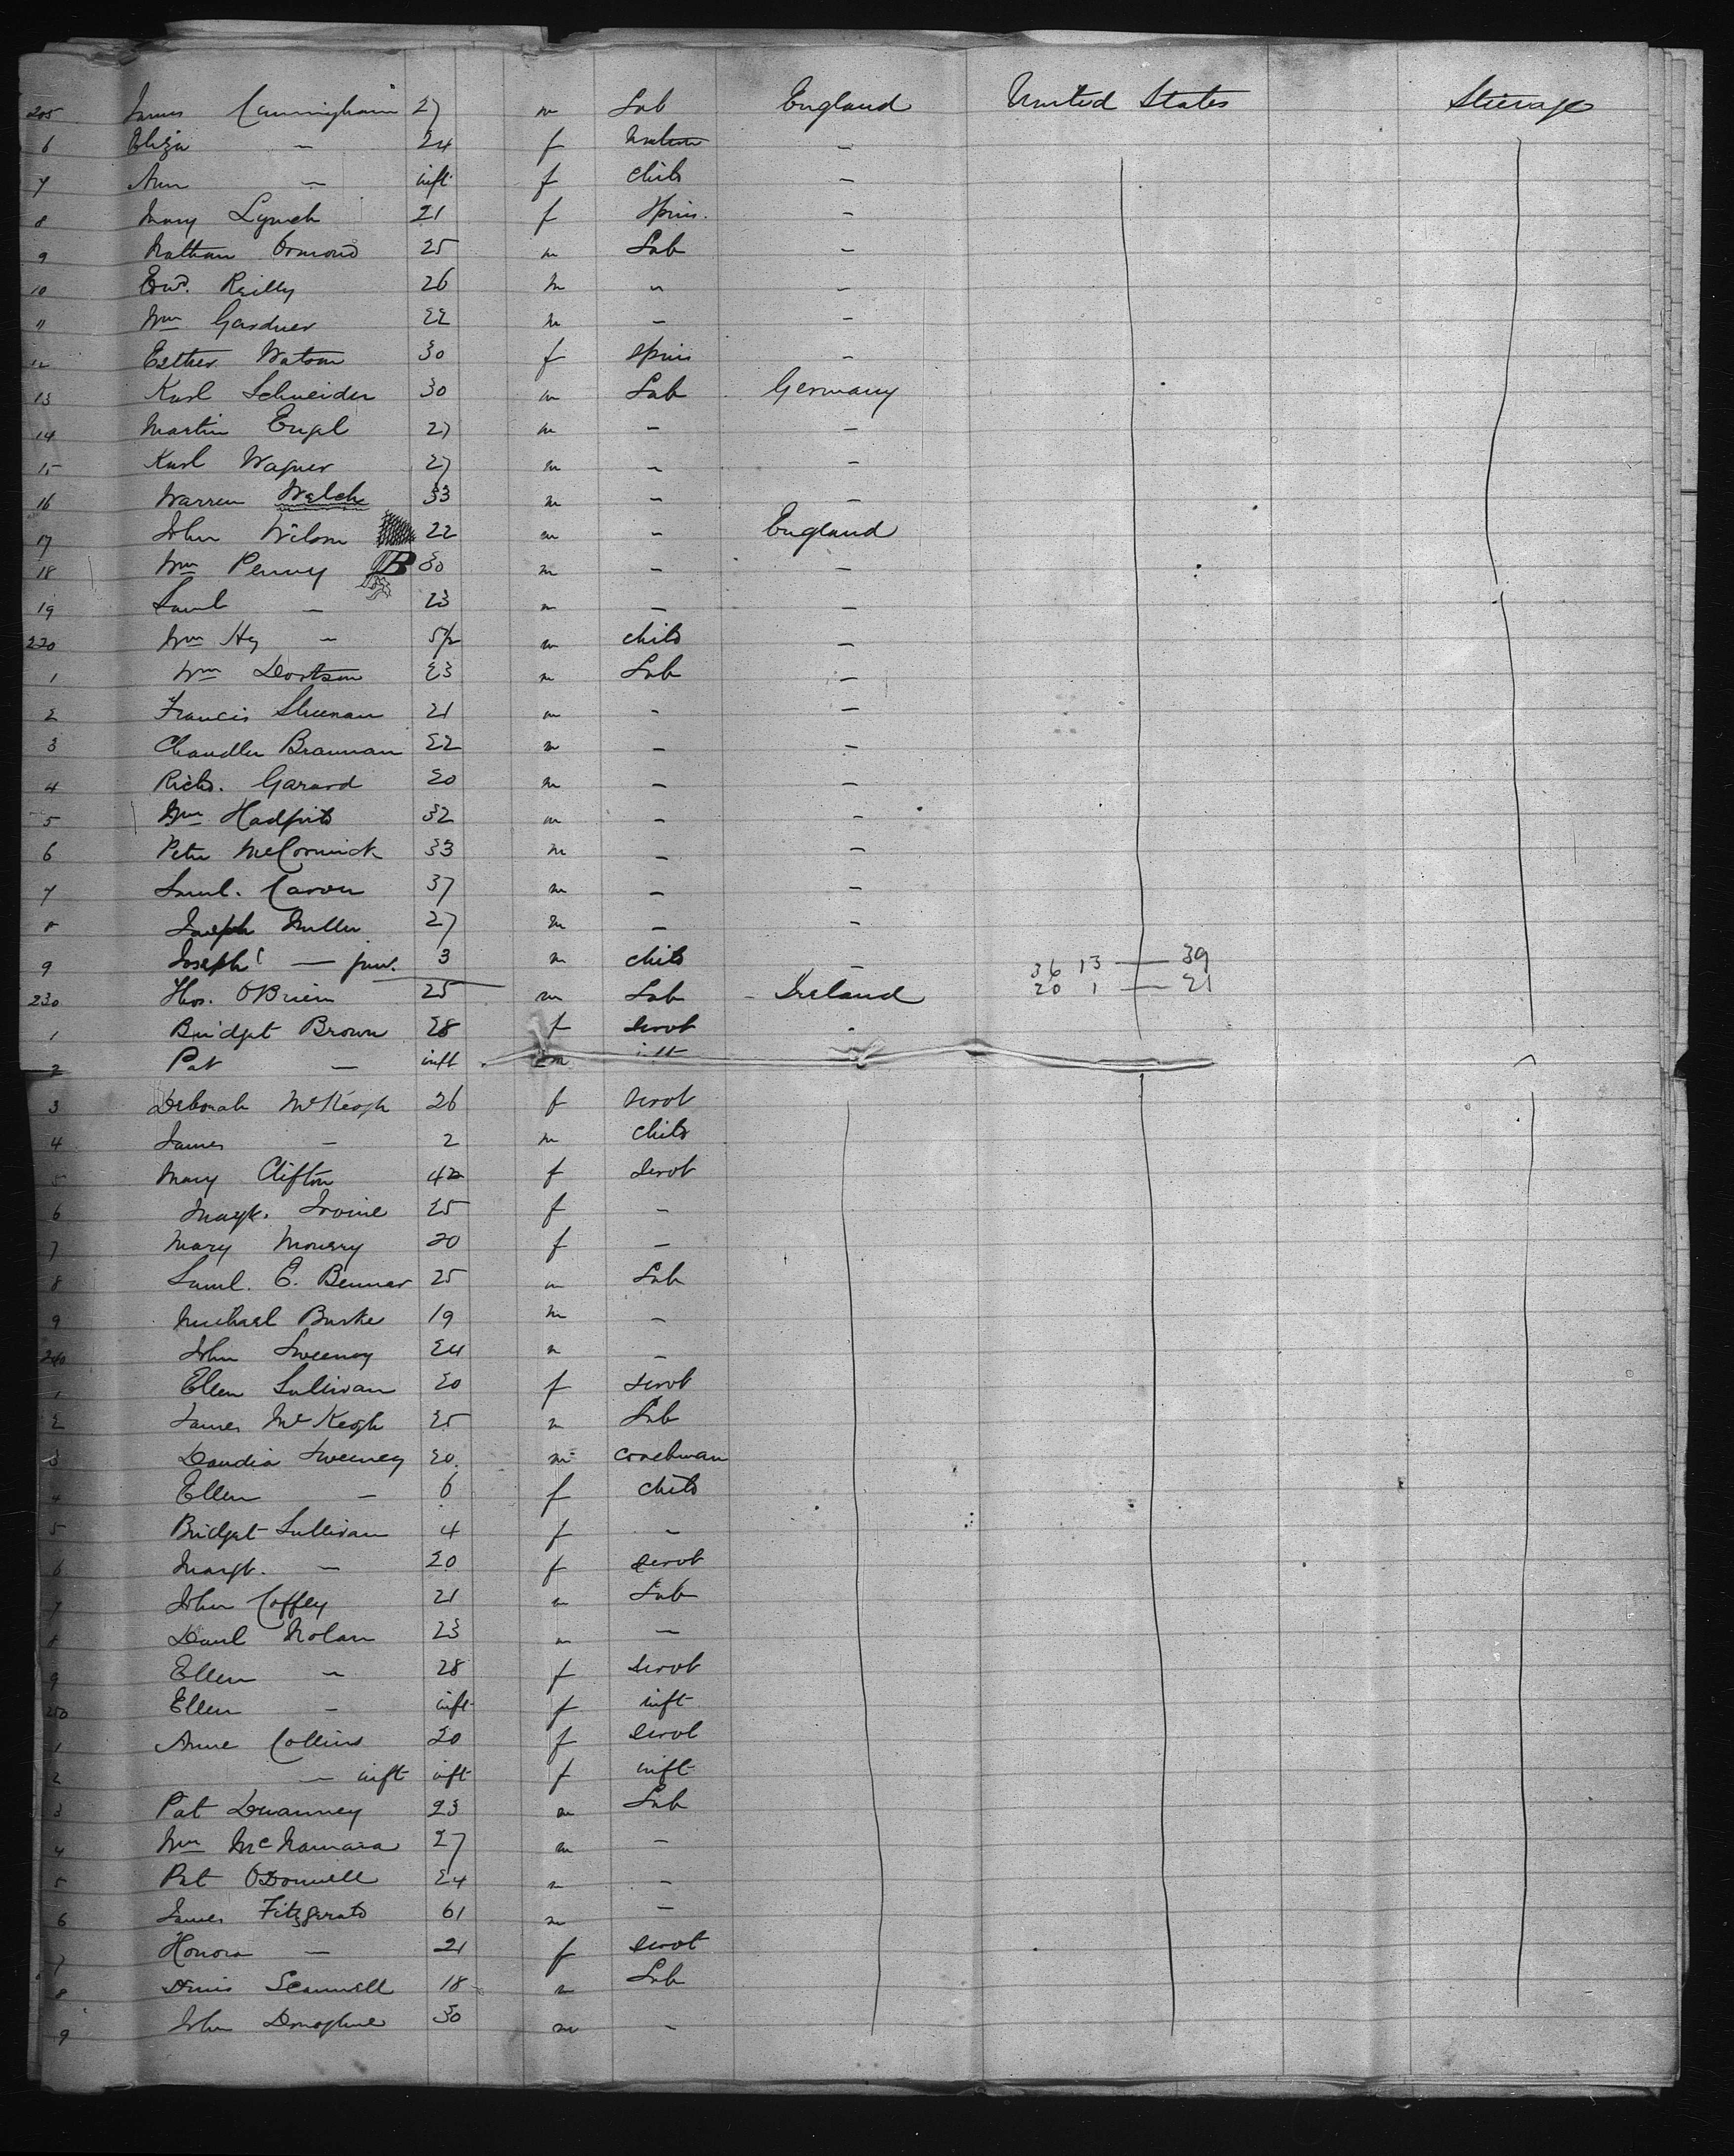 205 James Cunningham 27 m Lab England United States Steerage
6 Eliza — 24 f Matron —
7 Ann — inft f child —
8 Mary Lynch 21 f Spin. —
9 Nathan Ormond 25 m Lab —
10 Edwd. Reilly 26 m — —
11 Wm Gardner 22 m — —
12 Esther Watson 30 f Spin —
13 Karl Schneider 30 m Lab Germany
14 Martin Engel 27 m — —
15 Karl Wagner 27 m — —
16 Warren Welch 33 m — —
17 John Wilson 22 m — England
18 Wm Penny B 30 m — —
19 Saml — 23 m — —
220 Wm Hy — 5/12 m child —
1 Wm 23 m Lab —
2 Francis Sheenan 21 m — —
3 Chandler Brannan 22 m — —
4 Richd. Garard 20 m — —
5 Wm 32 m — —
6 Peter McCormick 33 m — —
7 Saml. Caron 37 m — —
8 Joseph Muller 27 m — —
9 Joseph — junr. 3 m child — 36 13 — 39
230 Thos. OBrien 25 m Lab Ireland 20 1 — 21
1 Bridget Brown 28 f servt
2 Pat — inft m inft
3 Deborah McKeogh 26 f servt
4 James — 2 m child
5 Mary Clifton 42 f servt
6 Margt. Irvine 25 f —
7 Mary Mowery 20 f —
8 Saml. E. Benner 25 m Lab
9 Michael Burke 19 m —
240 John Sweeney 24 m —
1 Ellen Sullivan 20 f servt
2 James McKeogh 25 m Lab
3 Sweeney 20 m coachman
4 Ellen — 6 f child
5 Bridget Sullivan 4 f —
6 Margt. — 20 f servt
7 John Coffey 21 m Lab
8 Danl Nolan 23 m —
9 Ellen — 28 f servt
250 Ellen — inft f inft
1 Anne Collins 20 f servt
2 — inft inft f inft
3 Pat 23 m Lab
4 Wm McNamara 27 m —
5 Pat ODonnell 24 m —
6 James Fitzgerald 61 m —
7 Honora — 21 f servt
8 Denis Scannell 18 m Lab
9 John Donoghue 30 m —